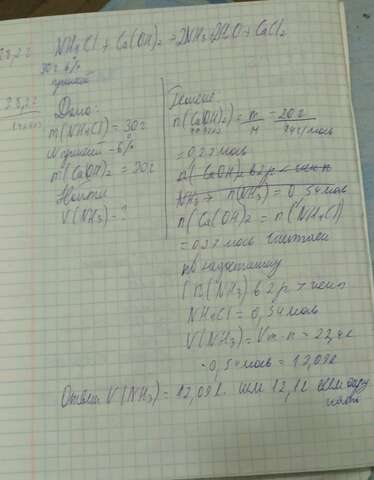 28,2 г
NH4Cl + Ca(OH)2 → 2NH3 + 2H2O + CaCl2
30 г 6%
примесей
28,2 г
Дано:
m(NH4Cl) = 30 г
w примесей - 6%
m(Ca(OH)2 = 20 г
Найти
V(NH3) - ?
Решение
n(Ca(OH)2) = m/M = 20 г / 74 г/моль
= 0,27 моль
n(Ca(OH)2 в 2 р <
NH3 → n(NH3) = 0,54 моль
n(Ca(OH)2 = n(NH4Cl)
= 0,27 моль Считаем
по недостатку
n(NH3) в 2 р > чем n
NH4Cl = 0,54 моль
V(NH3) = Vm · n = 22,4 л
· 0,54 моль = 12,09 л
Ответ V(NH3) = 12,09 л. или 12,1 л если